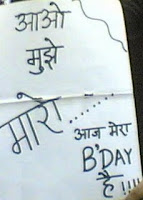 आओ
मुझे
मारो.......
आज मेरा
B'DAY
है!!!!